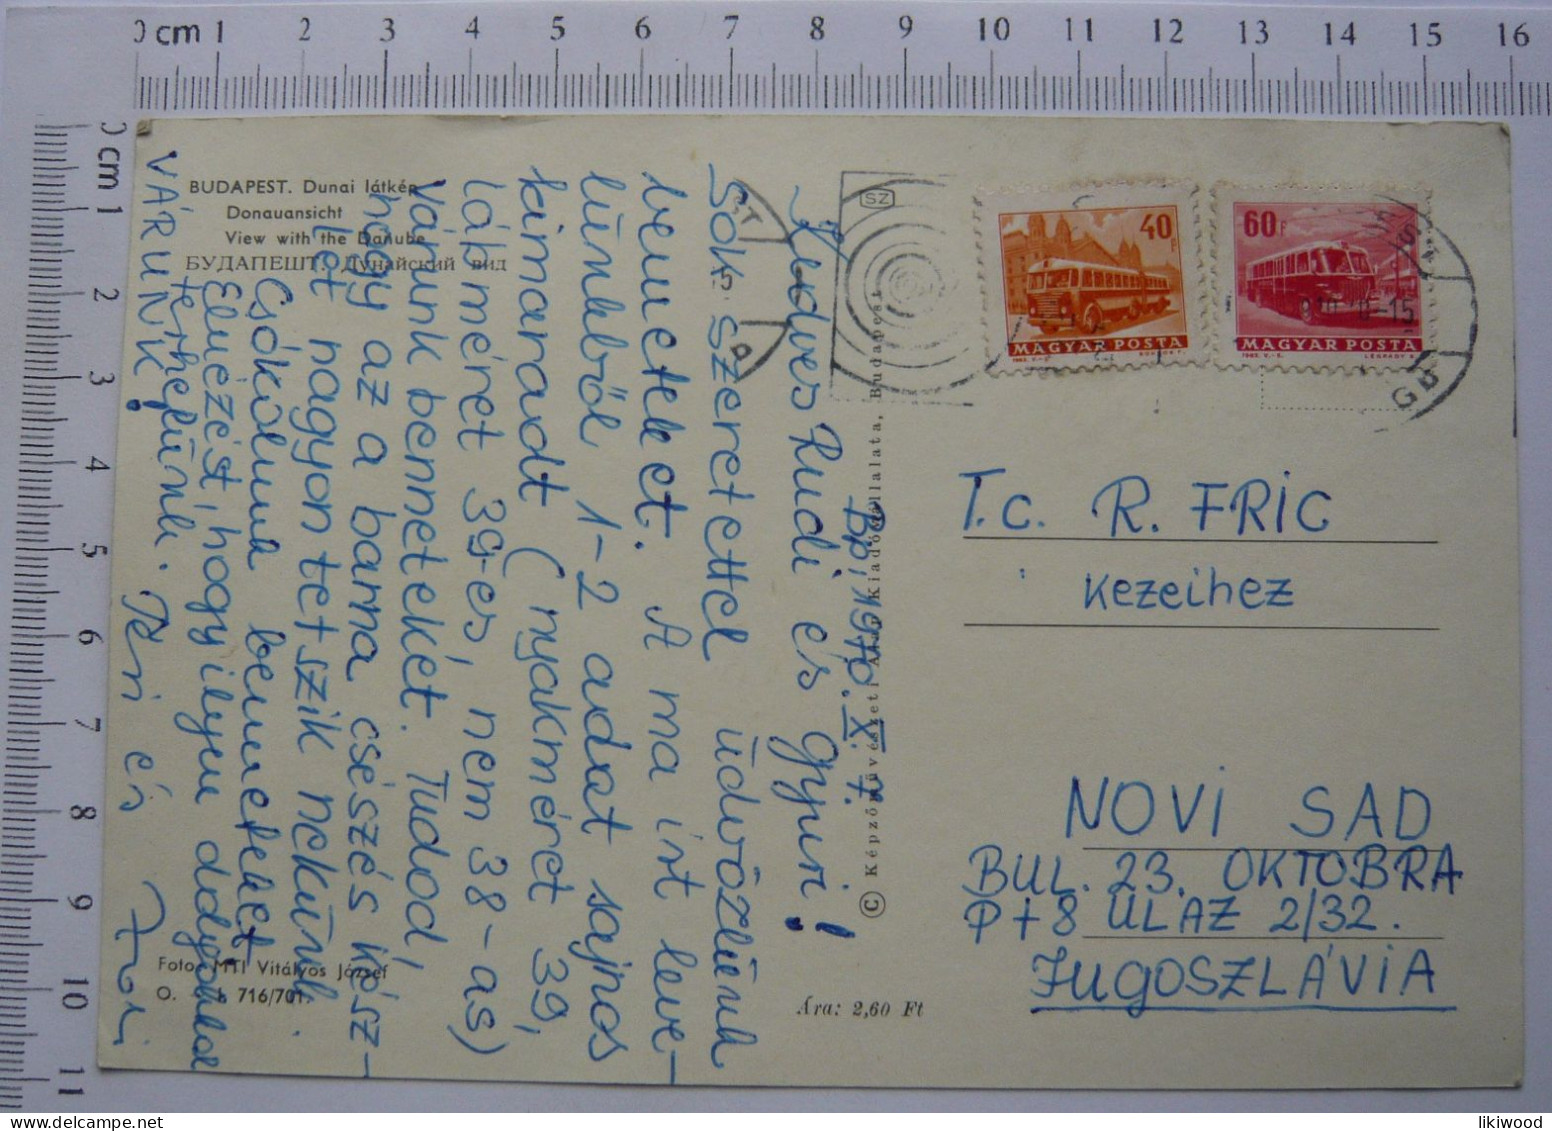 0 cm 1 2 3 4 5 6 7 8 9 10 11 12 13 14 15 16
0 cm 1 2 3 4 5 6 7 8 9 10 11
BUDAPEST. Dunai látkép
Donauansicht
View with the Danube
БУДАПЕШТ. Дунайский вид
Bp, 1970. X. 7.
Kedves Rudi és Gyuri!
Sok szeretettel üdvözlünk
benneteket. A ma írt leve-
lünkből 1-2 adat sajnos
kimaradt (nyakméret 39,
lábméret 39-es, nem 38-as)
Várunk benneteket. Tudod,
hogy az a barna csészés kész-
let nagyon tetszik nekünk.
Csókolunk benneteket
Elnézést, hogy ilyen dolgokkal
terhelünk. Teri és Zoli
VÁRUNK!
Foto: MTI Vitályos József
O. 716/701.
© Képzőművészeti Alap Kiadóvállalata, Budapest
Ára: 2,60 Ft
SZ
40f
MAGYAR POSTA
60f
MAGYAR POSTA
1963. V.-E.
LÉGRÁDY S.
T.c. R. FRIC
kezeihez
NOVI SAD
BUL. 23. OKTOBRA
P+8 ULAZ 2/32.
JUGOSZLÁVIA
likiwood